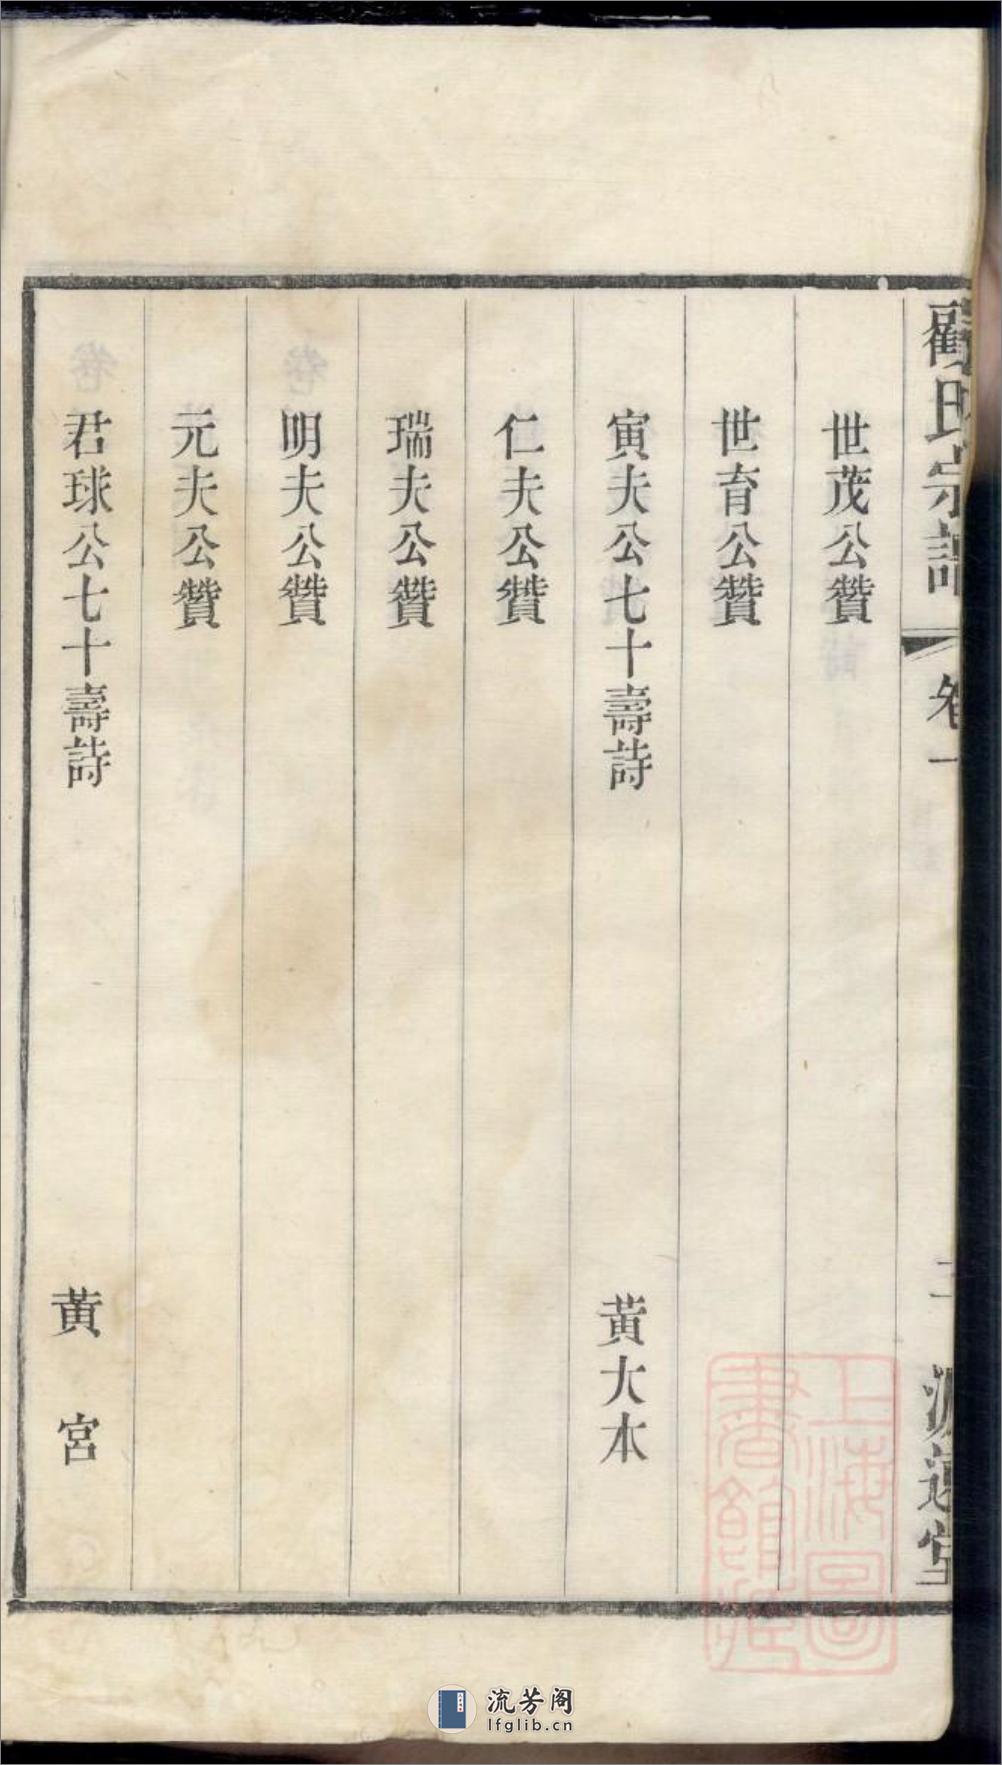 氏宗譜
卷一
世茂公贊
世育公贊
寅夫公七十壽詩 黃大本
仁夫公贊
瑞夫公贊
明夫公贊
元夫公贊
君球公七十壽詩 黃 宮
上海圖
書館藏
流芳阁
lfglib.cn